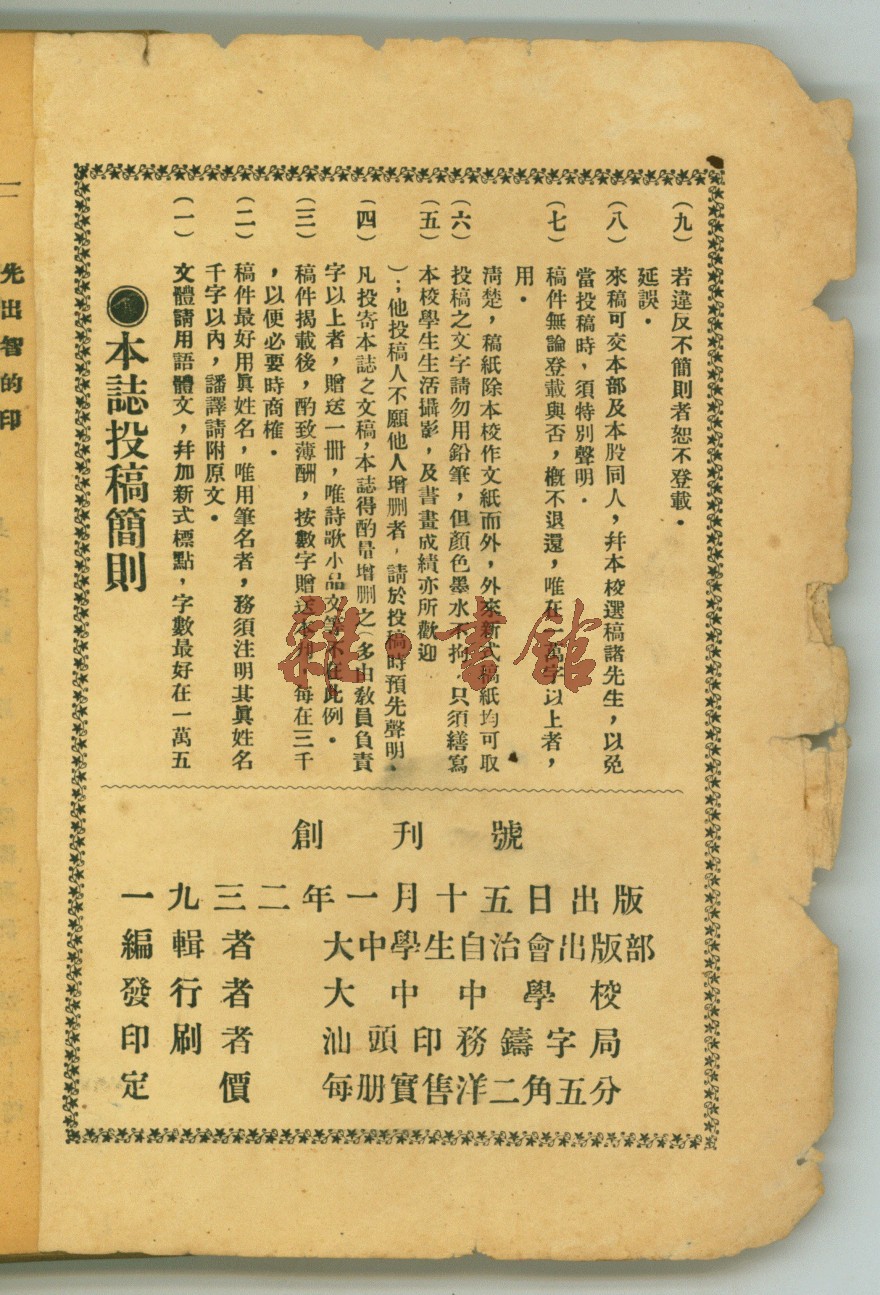 本誌投稿簡則
（一） 文體請用語體文，幷加新式標點，字數最好在一萬五
千字以內，譒譯請附原文。
（二） 稿件最好用眞姓名，唯用筆名者，務須注明其眞姓名
，以便必要時商榷。
（三） 稿件揭載後，酌致薄酬，按數字贈送本刊，每在三千
字以上者，贈送一册，唯詩歌小品文等不在此例。
（四） 凡投寄本誌之文稿，本誌得酌量增删之（多由敎員負責
）；他投稿人不願他人增删者，請於投稿時預先聲明、
（五） 本校學生生活攝影，及書畫成績亦所歡迎
（六） 投稿之文字請勿用鉛筆，但顏色墨水不拘，只須繕寫
淸楚，稿紙除本校作文紙而外，外來新式稿紙均可取
用。
（七） 稿件無論登載與否，槪不退還，唯在一萬字以上者，
當投稿時，須特別聲明。
（八） 來稿可交本部及本股同人，幷本校選稿諸先生，以免
延誤。
（九） 若違反不簡則者恕不登載。
創刊號
一九三二年一月十五日出版
編輯者 大中學生自治會出版部
發行者 大中中學校
印刷者 汕頭印務鑄字局
定價 每册實售洋二角五分
先出智的印
雜·書館